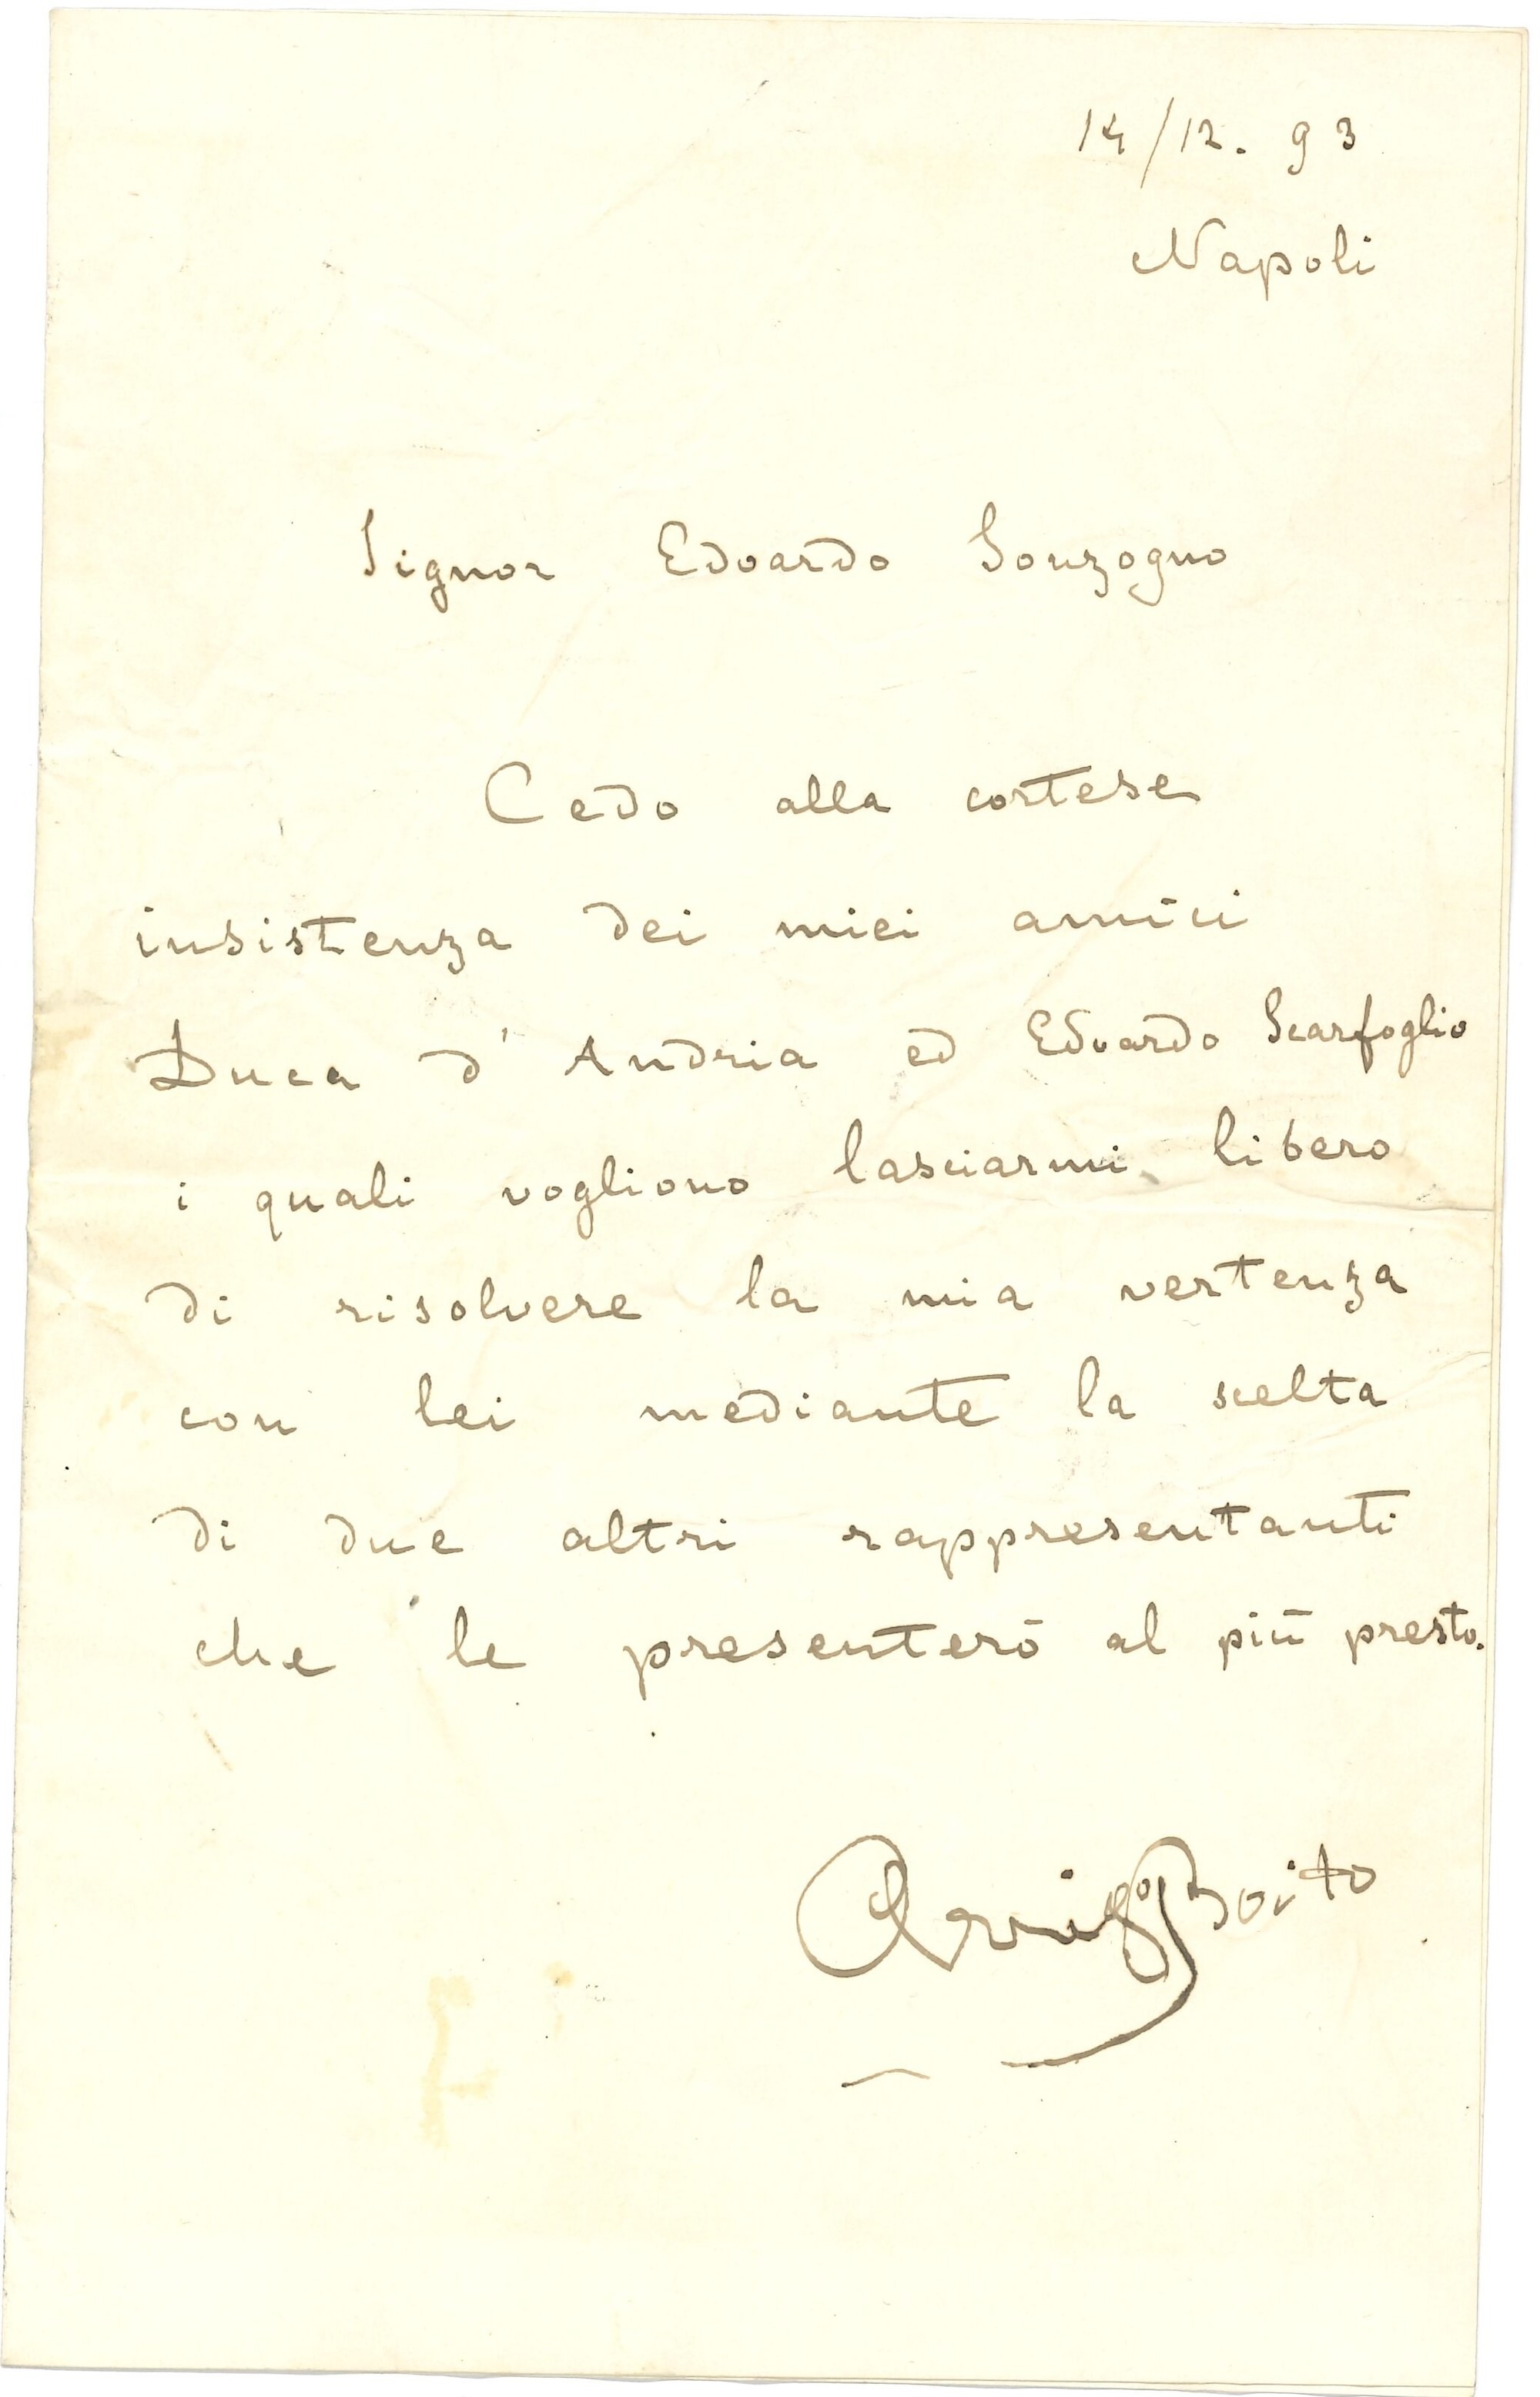 14/12. 93
Napoli
Signor Edoardo Sonzogno
Cedo alla cortese
insistenza dei miei amici
Duca d'Andria ed Edoardo Scarfoglio
i quali vogliono lasciarmi libero
di risolvere la mia vertenza
con lei mediante la scelta
di due altri rappresentanti
che le presenterò al più presto.
Arrigo Boito